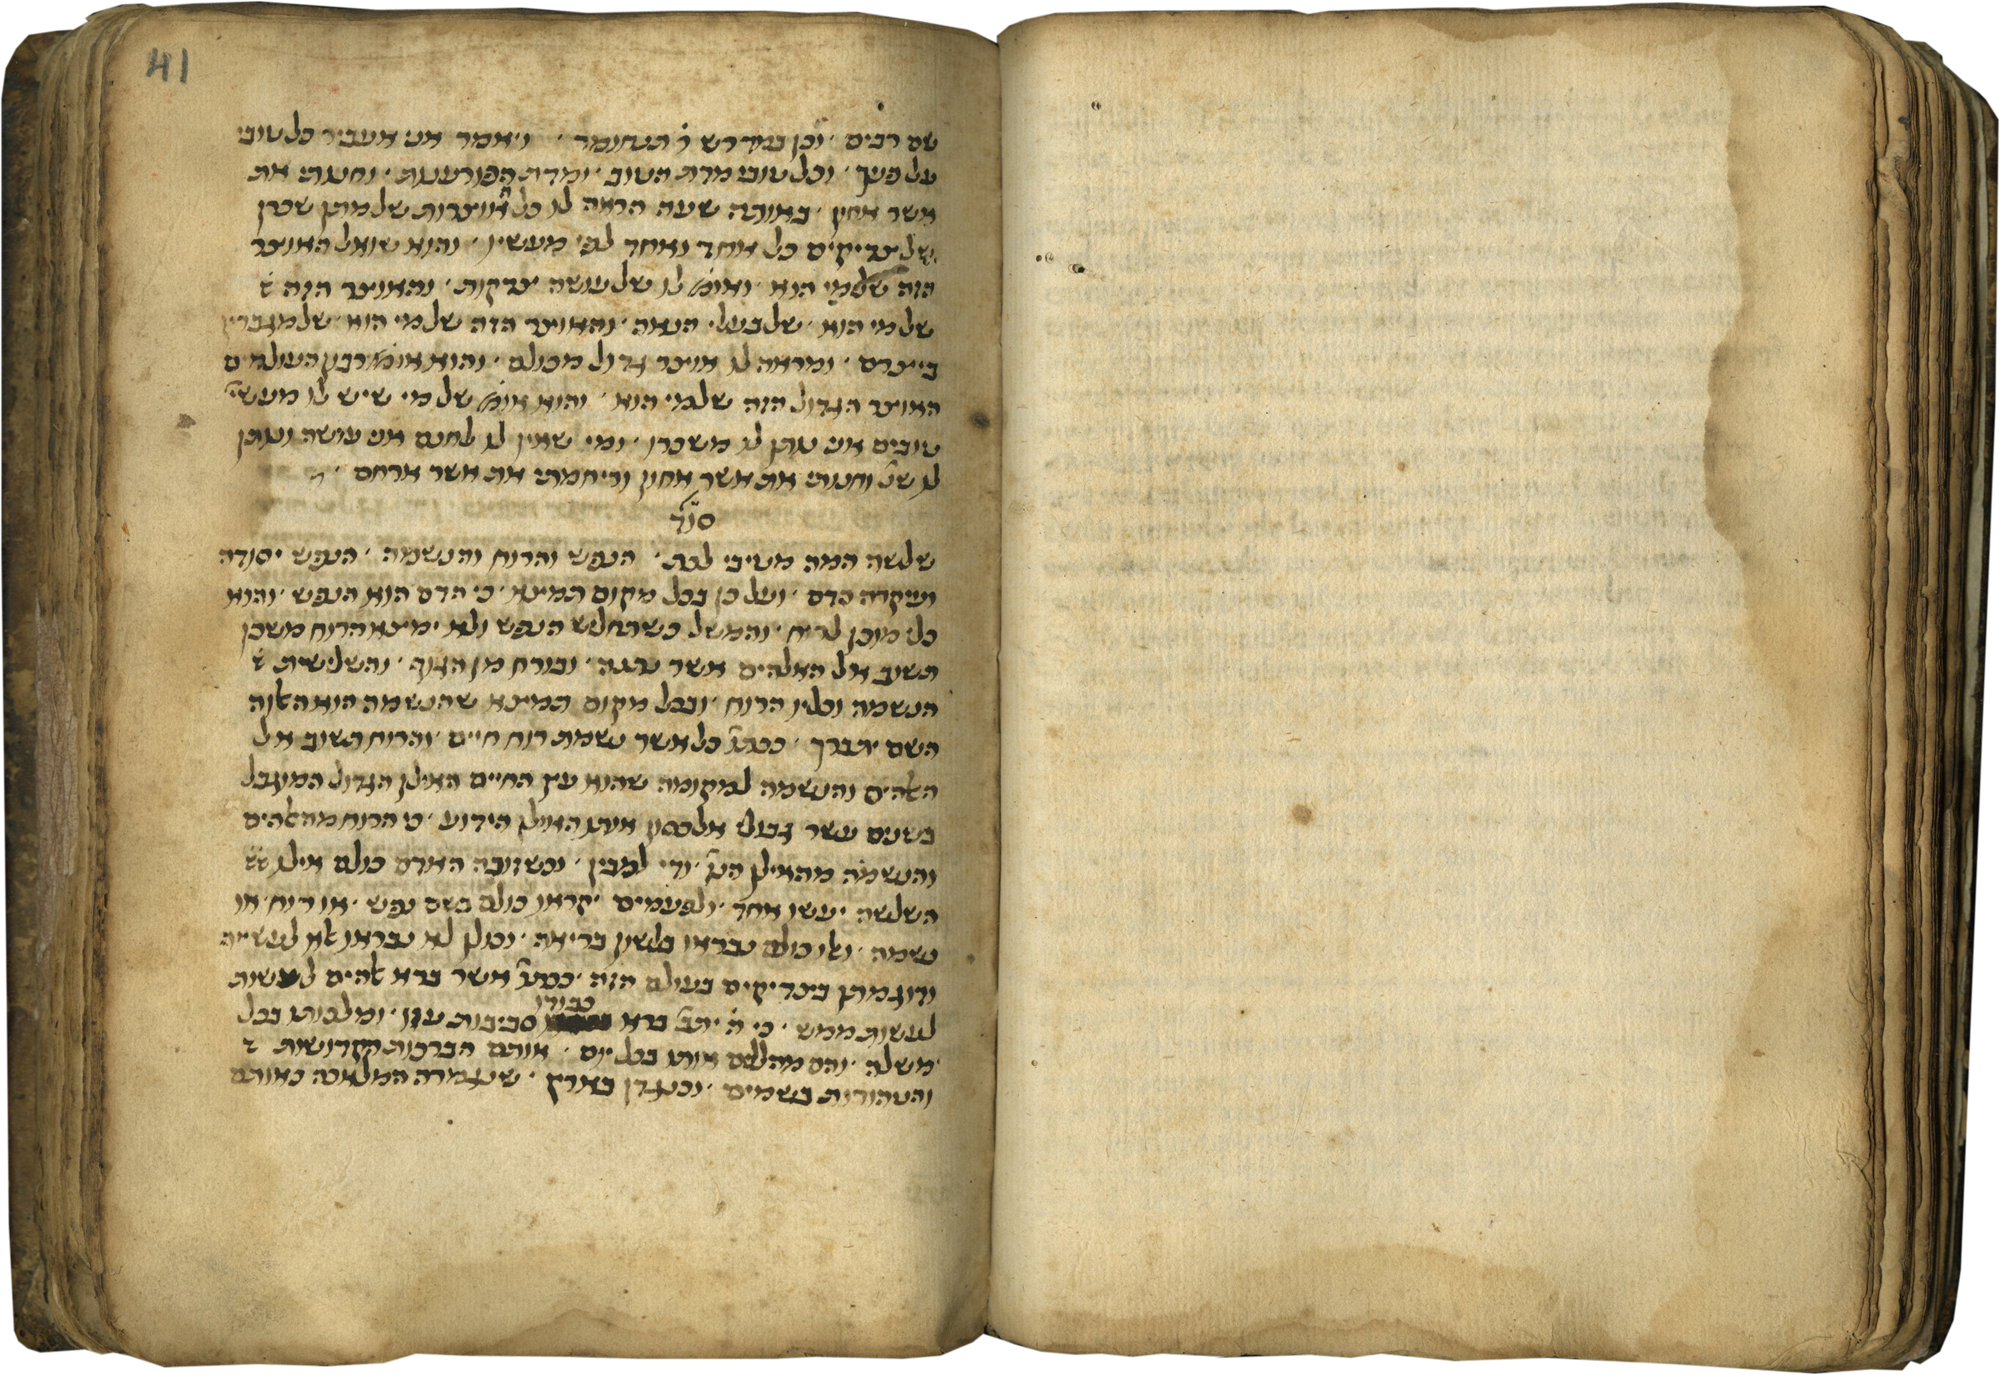 41
שם רבים · וכן במדרש ר' תנחומא · ויאמר אני אעביר כל טובי
על פניך · וכל טובי מדת הטוב · ומדת הפורענות · וחנותי את
אשר אחון · באותה שעה הראה לו כל האוצרות של מתן שכרן
של צדיקים כל אחד ואחד לפי מעשיו · והוא שואל האוצר
הזה של מי הוא · ואומ' לו של עושה צדקות · והאוצר הזה
של מי הוא · של בעלי הנאה · והאוצר הזה של מי הוא · של
ומראה לו אוצר גדול מכולם · והוא אומ' רבון העולמים
האוצר הגדול הזה של מי הוא · והוא אומ' של מי שיש לו מעשי'
טובים אני נותן לו משכרו · ומי שאין לו לחנם אני עושה ונותן
לו שנ' וחנותי את אשר אחון וריחמתי את אשר ארחם ·
סוד
שלשה המה מטיבי לכת · הנפש והרוח והנשמה · הנפש יסודה
ועיקרה בדם · ועל כן בכל מקום תמצא · כי הדם הוא הנפש · והוא
כלי מוכן לרוח · והמשל כשתחלש הנפש ולא ימצא הרוח משכן
תשוב אל האלהים אשר נתנה · ובורח מן הגוף · והשלישית
הנשמה וכליו הרוח · ובכל מקום תמצא שהנשמה הוא האוה
השם יתברך · ככתו' כל אשר נשמת רוח חיים · והרוח תשוב אל
האלהים והנשמה למקומה שהוא עץ החיים האילן הגדול המוגבל
בשנים עשר גבולי אלכסון אותו האילן הידוע · כי הרוח מהאלהים
והנשמה מהאילן הנז' · ודי למבין · וכשזוכה האדם כולם אילו
השלשה יעשו אחד · ולפעמים יקראו כולם בשם נפש · או רוח · או
נשמה · ואלו כולם נבראו בלשון בריאה · וכולן לא נבראו אלא לעשייה
ודוגמתן בצדיקים בעולם הזה · ככתו' אשר ברא אלהים לעשות
לעשות ממש · כי ה' ית' ברא כבודו סביבות עוזו · ומלכותו בכל
משלה · והם מהללים אותו בכל יום · אותם הברכות הקדושות
והטהורות בשמים · וכנגדן בארץ · שנגמרה המלאכה באותם